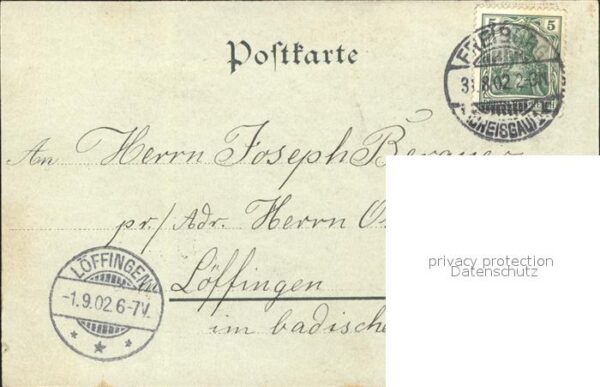 Postkarte
5 5
FREIBURG
31.8.02.2-3N
(BREISGAU)
An Herrn Joseph
pr./Adr. Herrn
LÖFFINGEN
-1.9.02.6-7V.
Löffingen
im badische
privacy protection
Datenschutz